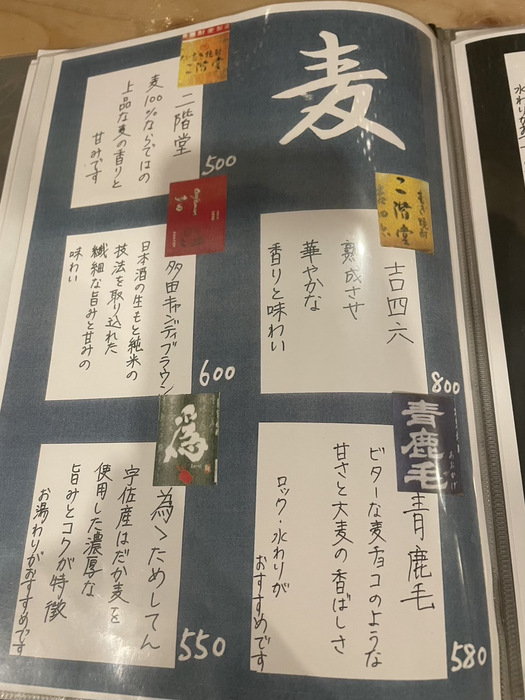 麦
吉四六
熟成させ
華やかな
香りと味わい
800
二階堂
麦100%ならではの
上品な麦の香りと
甘みです
500
青鹿毛
青鹿毛
ビターな麦チョコのような
甘さと大麦の香ばしさ
ロック・水わりが
おすすめです
580
多田キャンディブラウン
日本酒の生もと純米の
技法を取り込れた
繊細な旨みと甘みの
味わい
600
為
為ヽためしてん
宇佐産はだか麦を
使用した濃厚な
旨みとコクが特徴
お湯わりがおすすめです
550
二階堂
吉四六
二階堂
水わりが